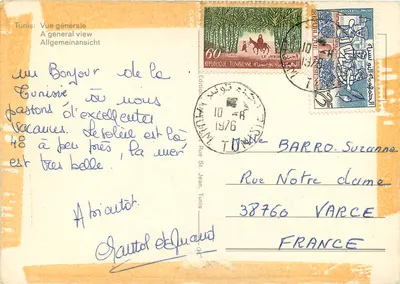 Tunis: Vue générale
A general view
Allgemeinansicht
un Bonjour de la
Tunisie où nous
passons d'excellentes
vacances. Le soleil est là
48 à peu près, la mer
est très belle.
A bientôt
60
REPUBLIQUE TUNISIENNE
60
10 -8
1976
10 -8
1976
Rue St. Jean, Tunis
Mme BARRO. Suzanne
Rue Notre dame
38760 VARCE
FRANCE